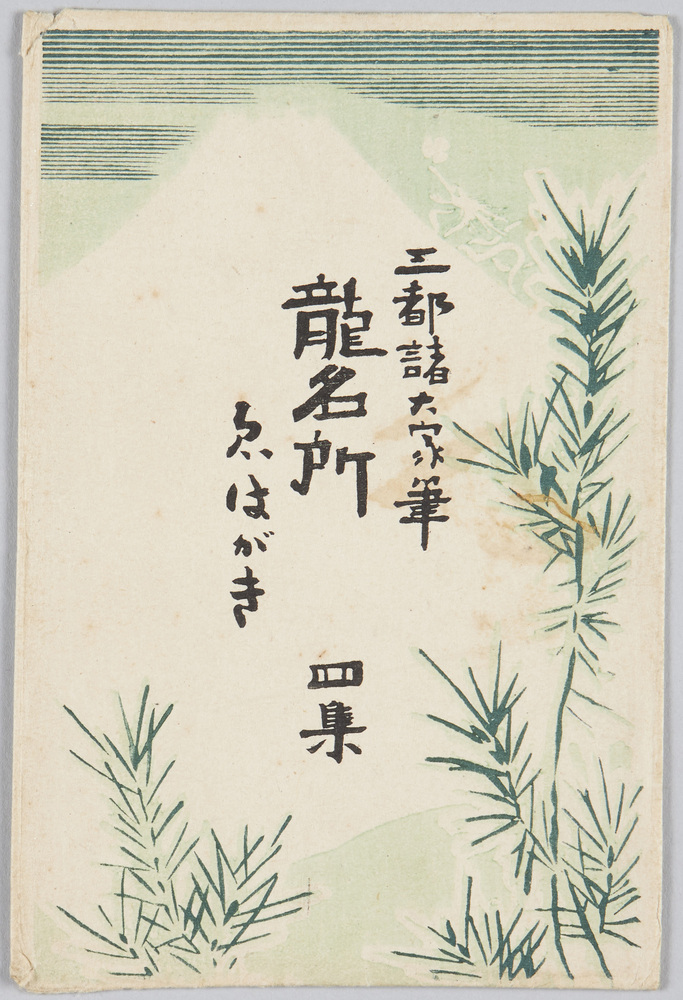 三都諸大家筆
龍名所
ゑはがき
四集